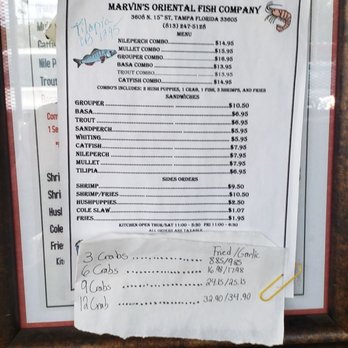 MARVIN'S ORIENTAL FISH COMPANY
3605 N. 15TH ST, TAMPA FLORIDA 33605
(813) 247-5128
MENU
NILEPERCH COMBO $14.95
MULLET COMBO $15.95
GROUPER COMBO $16.95
BASA COMBO $13.95
TROUT COMBO $13.95
CATFISH COMBO $14.95
COMBO'S INCLUDES: 2 HUSH PUPPIES, 1 CRAB, 1 FISH, 3 SHRIMPS, AND FRIES
SANDWICHES
GROUPER $10.50
BASA $6.95
TROUT $6.95
SANDPERCH $5.95
WHITING $5.95
CATFISH $7.95
NILEPERCH $7.95
MULLET $7.95
TILIPIA $6.95
SIDES ORDERS
SHRIMP $9.50
SHRIMP/FRIES $10.50
HUSHPUPPIES $2.50
COLE SLAW $1.07
FRIES $1.95
KITCHEN OPEN THUR/SAT 11:00 - 5:30 FRI 11:00 - 5:50
ALL ORDERS ARE TAXABLE
Fried/Garlic
3 Crabs 8.85/9.85
6 Crabs 16.98/17.98
9 Crabs 24.15/25.15
12 Crab 32.90/34.90